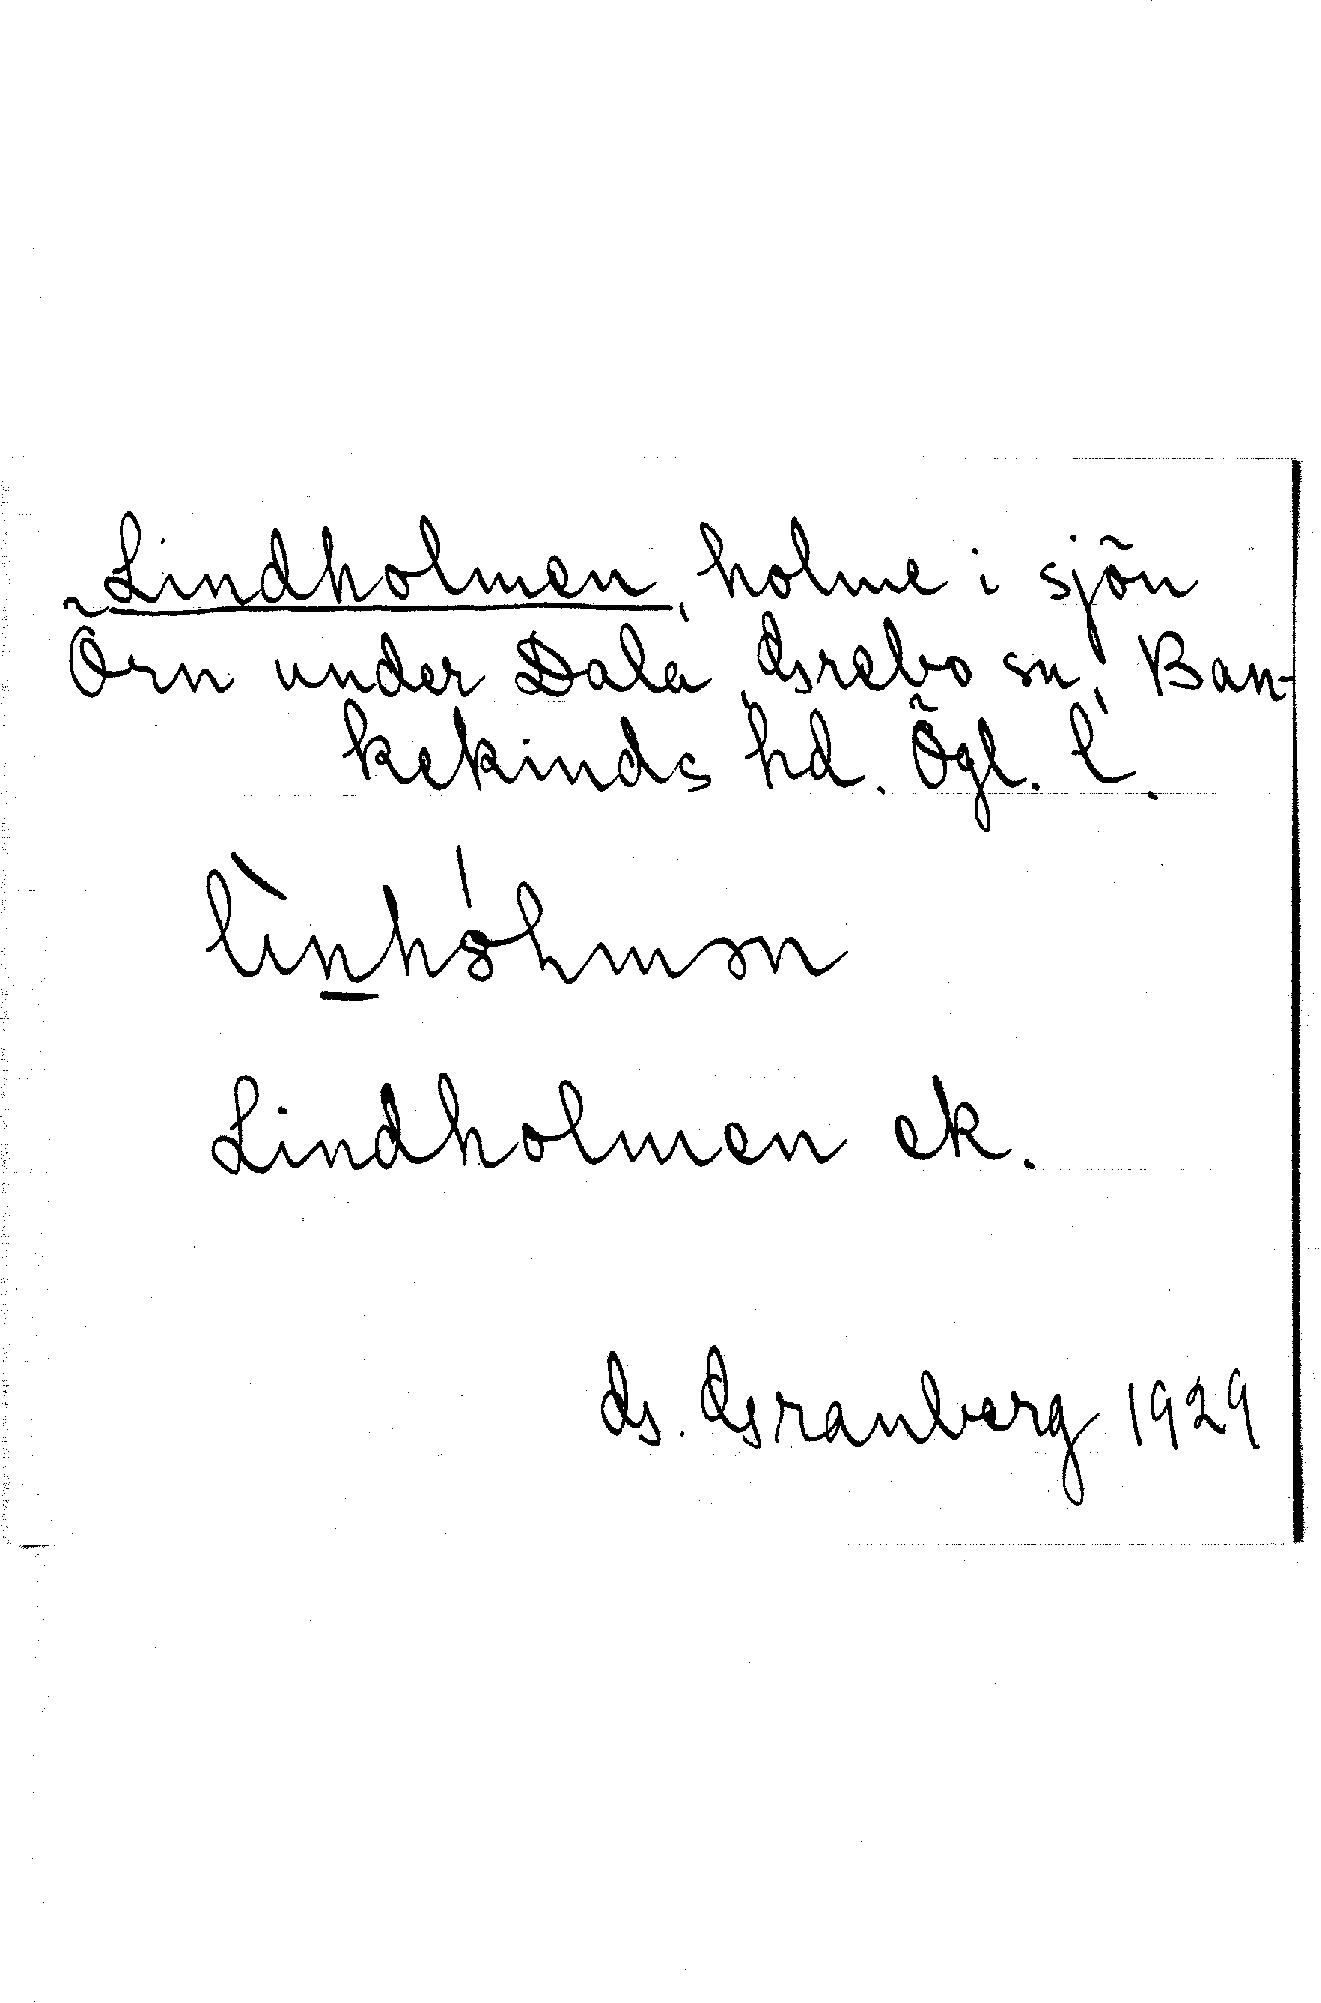 Lindholmen, holme i sjön
Örn under Dala, Grebo sn, Ban-
kekinds hd. Ögl. l.
Lindholmen ek.
G. Granberg 1929